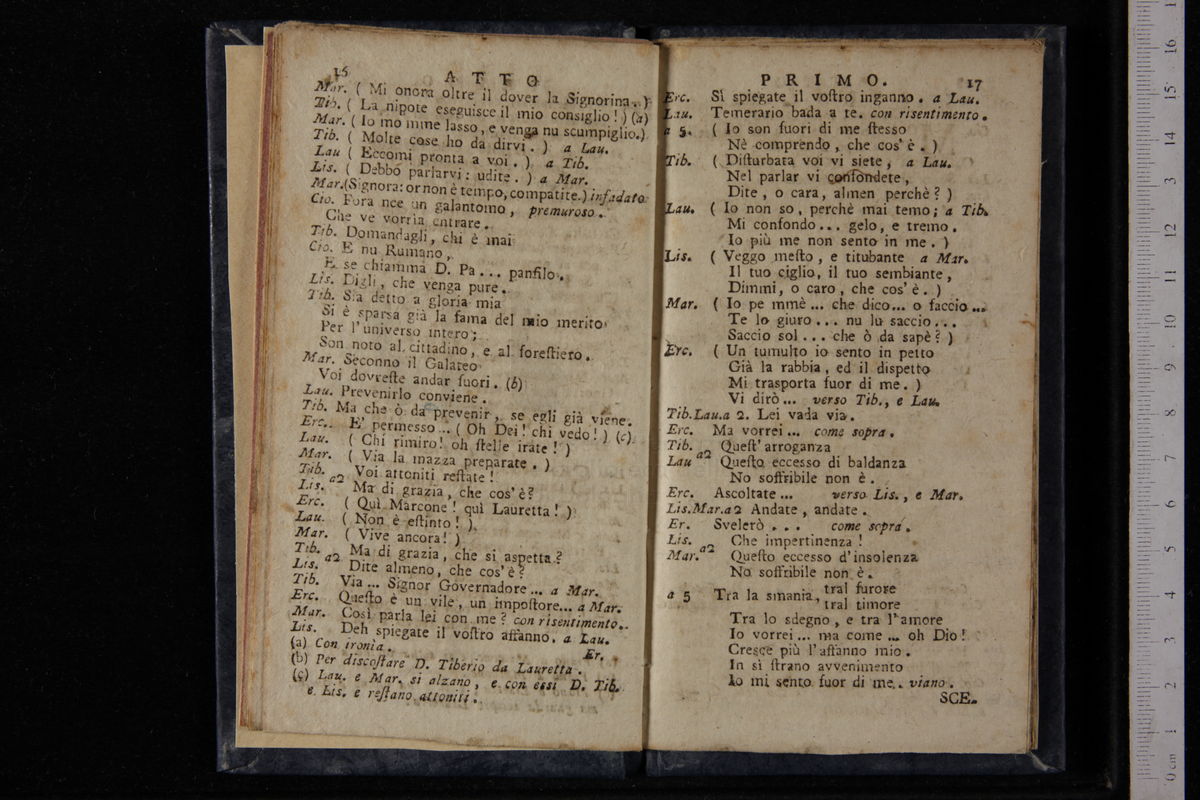 16
ATTO
Mar. ( Mi onora oltre il dover la Signorina. )
Tib. ( La nipote eseguisce il mio consiglio! ) (a)
Mar. ( Io mo mme lasso, e venga nu scumpiglio. )
Tib. ( Molte cose ho da dirvi. ) a Lau.
Lau ( Eccomi pronta a voi. ) a Tib.
Lis. ( Debbo parlarvi: udite. ) a Mar.
Mar. (Signora: or non è tempo, compatite.) infadato
Cio. Fora nce un galantomo, premuroso.
Che ve vorria entrare.
Tib. Domandagli, chi è mai
Cio. E nu Rumano,
E se chiamma D. Pa... panfilo.
Lis. Digli, che venga pure.
Tib. Sia detto a gloria mia
Si è sparsa già la fama del mio merito
Per l'universo intero;
Son noto al cittadino, e al forestiero.
Mar. Seconno il Galateo
Voi dovreste andar fuori. (b)
Lau. Prevenirlo conviene.
Tib. Ma che ò da prevenir, se egli già viene.
Erc. E' permesso... ( Oh Dei! chi vedo! ) (c)
Lau. ( Chi rimiro! oh stelle irate! )
Mar. ( Via la mazza preparate. )
Tib. a2 Voi attoniti restate!
Lis. Ma di grazia, che cos'è?
Erc. ( Quì Marcone! quì Lauretta! )
Lau. ( Non è estinto! )
Mar. ( Vive ancora! )
Tib. a2 Ma di grazia, che si aspetta?
Lis. Dite almeno, che cos'è?
Tib. Via... Signor Governadore... a Mar.
Erc. Questo è un vile, un impostore... a Mar.
Mar. Così parla lei con me? con risentimento.
Lis. Deh spiegate il vostro affanno. a Lau.
Er.
(a) Con ironia.
(b) Per discostare D. Tiberio da Lauretta.
(c) Lau. e Mar. si alzano, e con essi D. Tib.
e Lis. e restano attoniti.
PRIMO.
17
Erc. Sì spiegate il vostro inganno. a Lau.
Lau. Temerario bada a te. con risentimento.
a 5. ( Io son fuori di me stesso
Nè comprendo, che cos'è. )
Tib. ( Disturbata voi vi siete, a Lau.
Nel parlar vi confondete,
Dite, o cara, almen perchè? )
Lau. ( Io non so, perchè mai temo; a Tib.
Mi confondo... gelo, e tremo.
Io più me non sento in me. )
Lis. ( Veggo mesto, e titubante a Mar.
Il tuo ciglio, il tuo sembiante,
Dimmi, o caro, che cos'è. )
Mar. ( Io pe mmè... che dico... o faccio...
Te lo giuro... nu lu saccio...
Saccio sol... che ò da sapè? )
Erc. ( Un tumulto io sento in petto
Già la rabbia, ed il dispetto
Mi trasporta fuor di me. )
Vi dirò... verso Tib., e Lau.
Tib.Lau.a 2. Lei vada via.
Erc. Ma vorrei... come sopra.
Tib. Quest'arroganza
Lau a2 Questo eccesso di baldanza
No soffribile non è.
Erc. Ascoltate... verso Lis., e Mar.
Lis.Mar.a2 Andate, andate.
Er. Svelerò... come sopra.
Lis. Che impertinenza!
Mar. a2 Questo eccesso d'insolenza
No soffribile non è.
a 5 Tra la smania, tral furore
tral timore
Tra lo sdegno, e tra l'amore
Io vorrei... ma come... oh Dio!
Cresce più l'affanno mio.
In sì strano avvenimento
Io mi sento fuor di me. viano.
SCE.